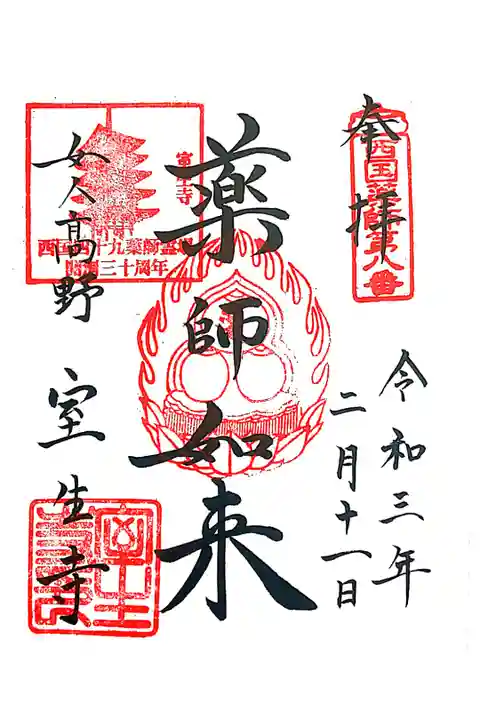 奉拝
西国薬師第八番
令和三年
二月十一日
薬師如来
室生寺
西国四十九薬師霊場
開創三十周年
女人高野
室生寺